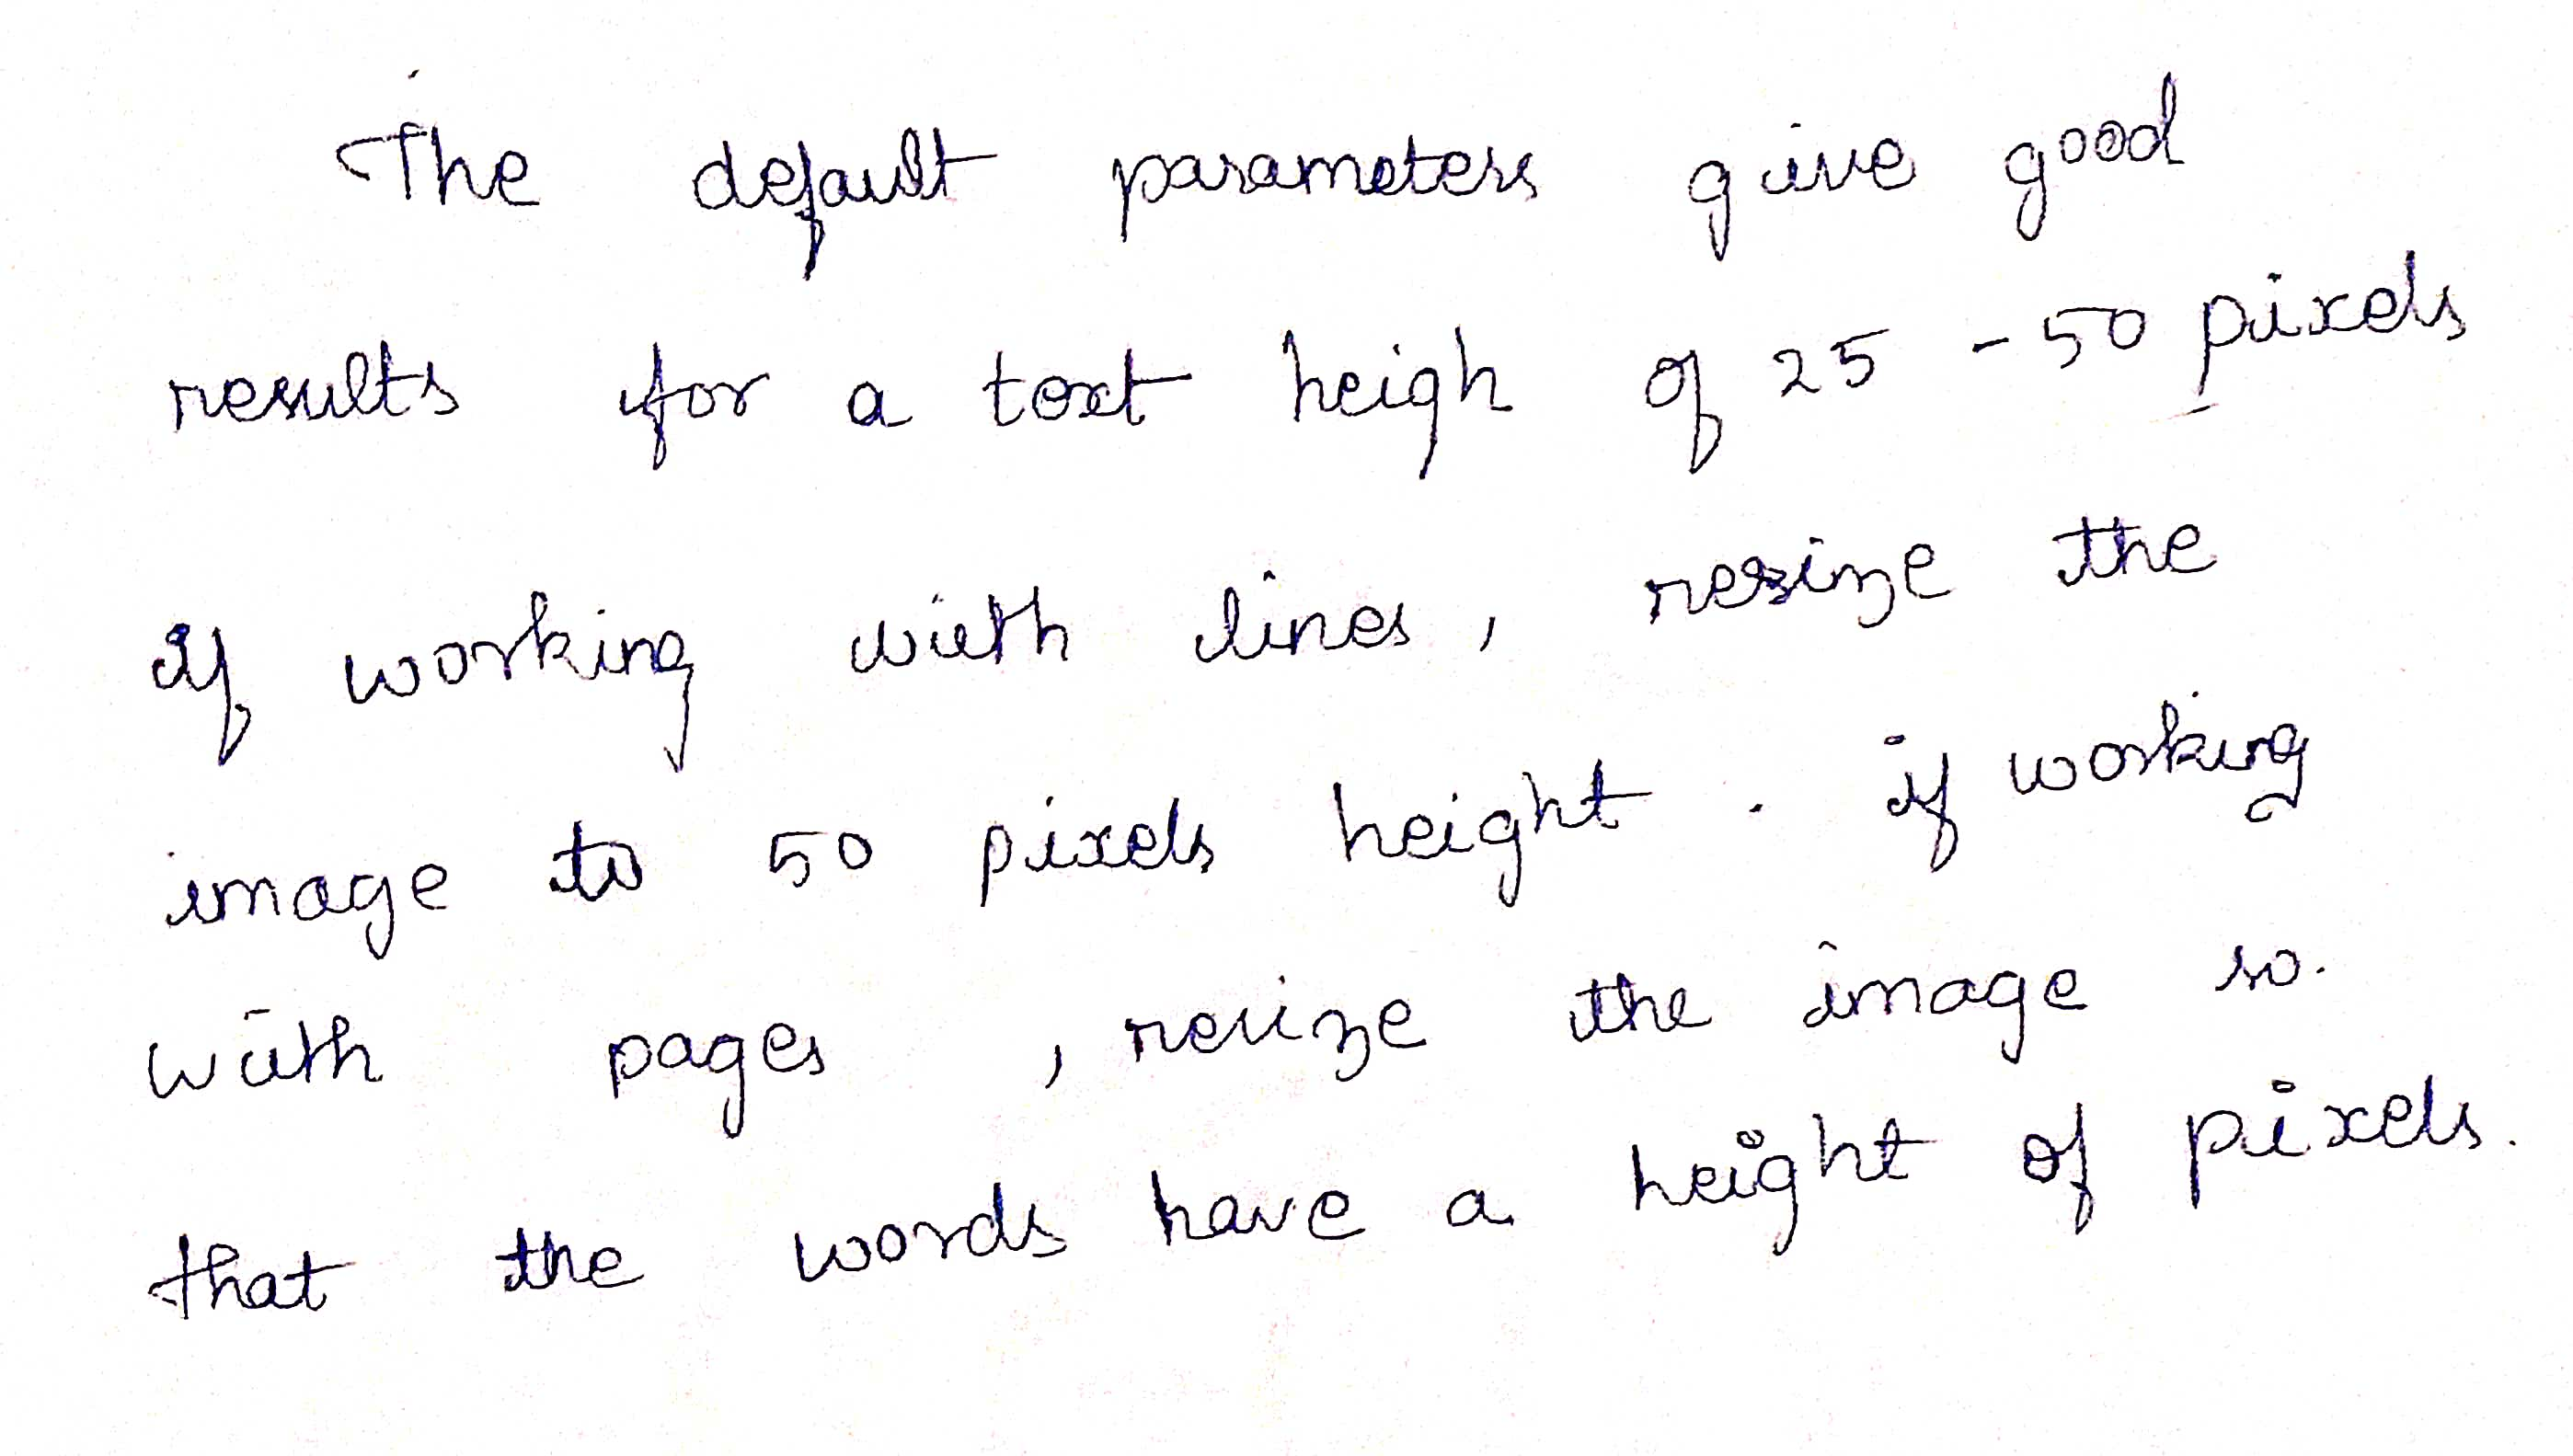 The default parameters give good
results for a text heigh of 25 - 50 pixels
If working with lines, resize the
image to 50 pixels height. if working
with pages, resize the image so.
that the words have a height of pixels.